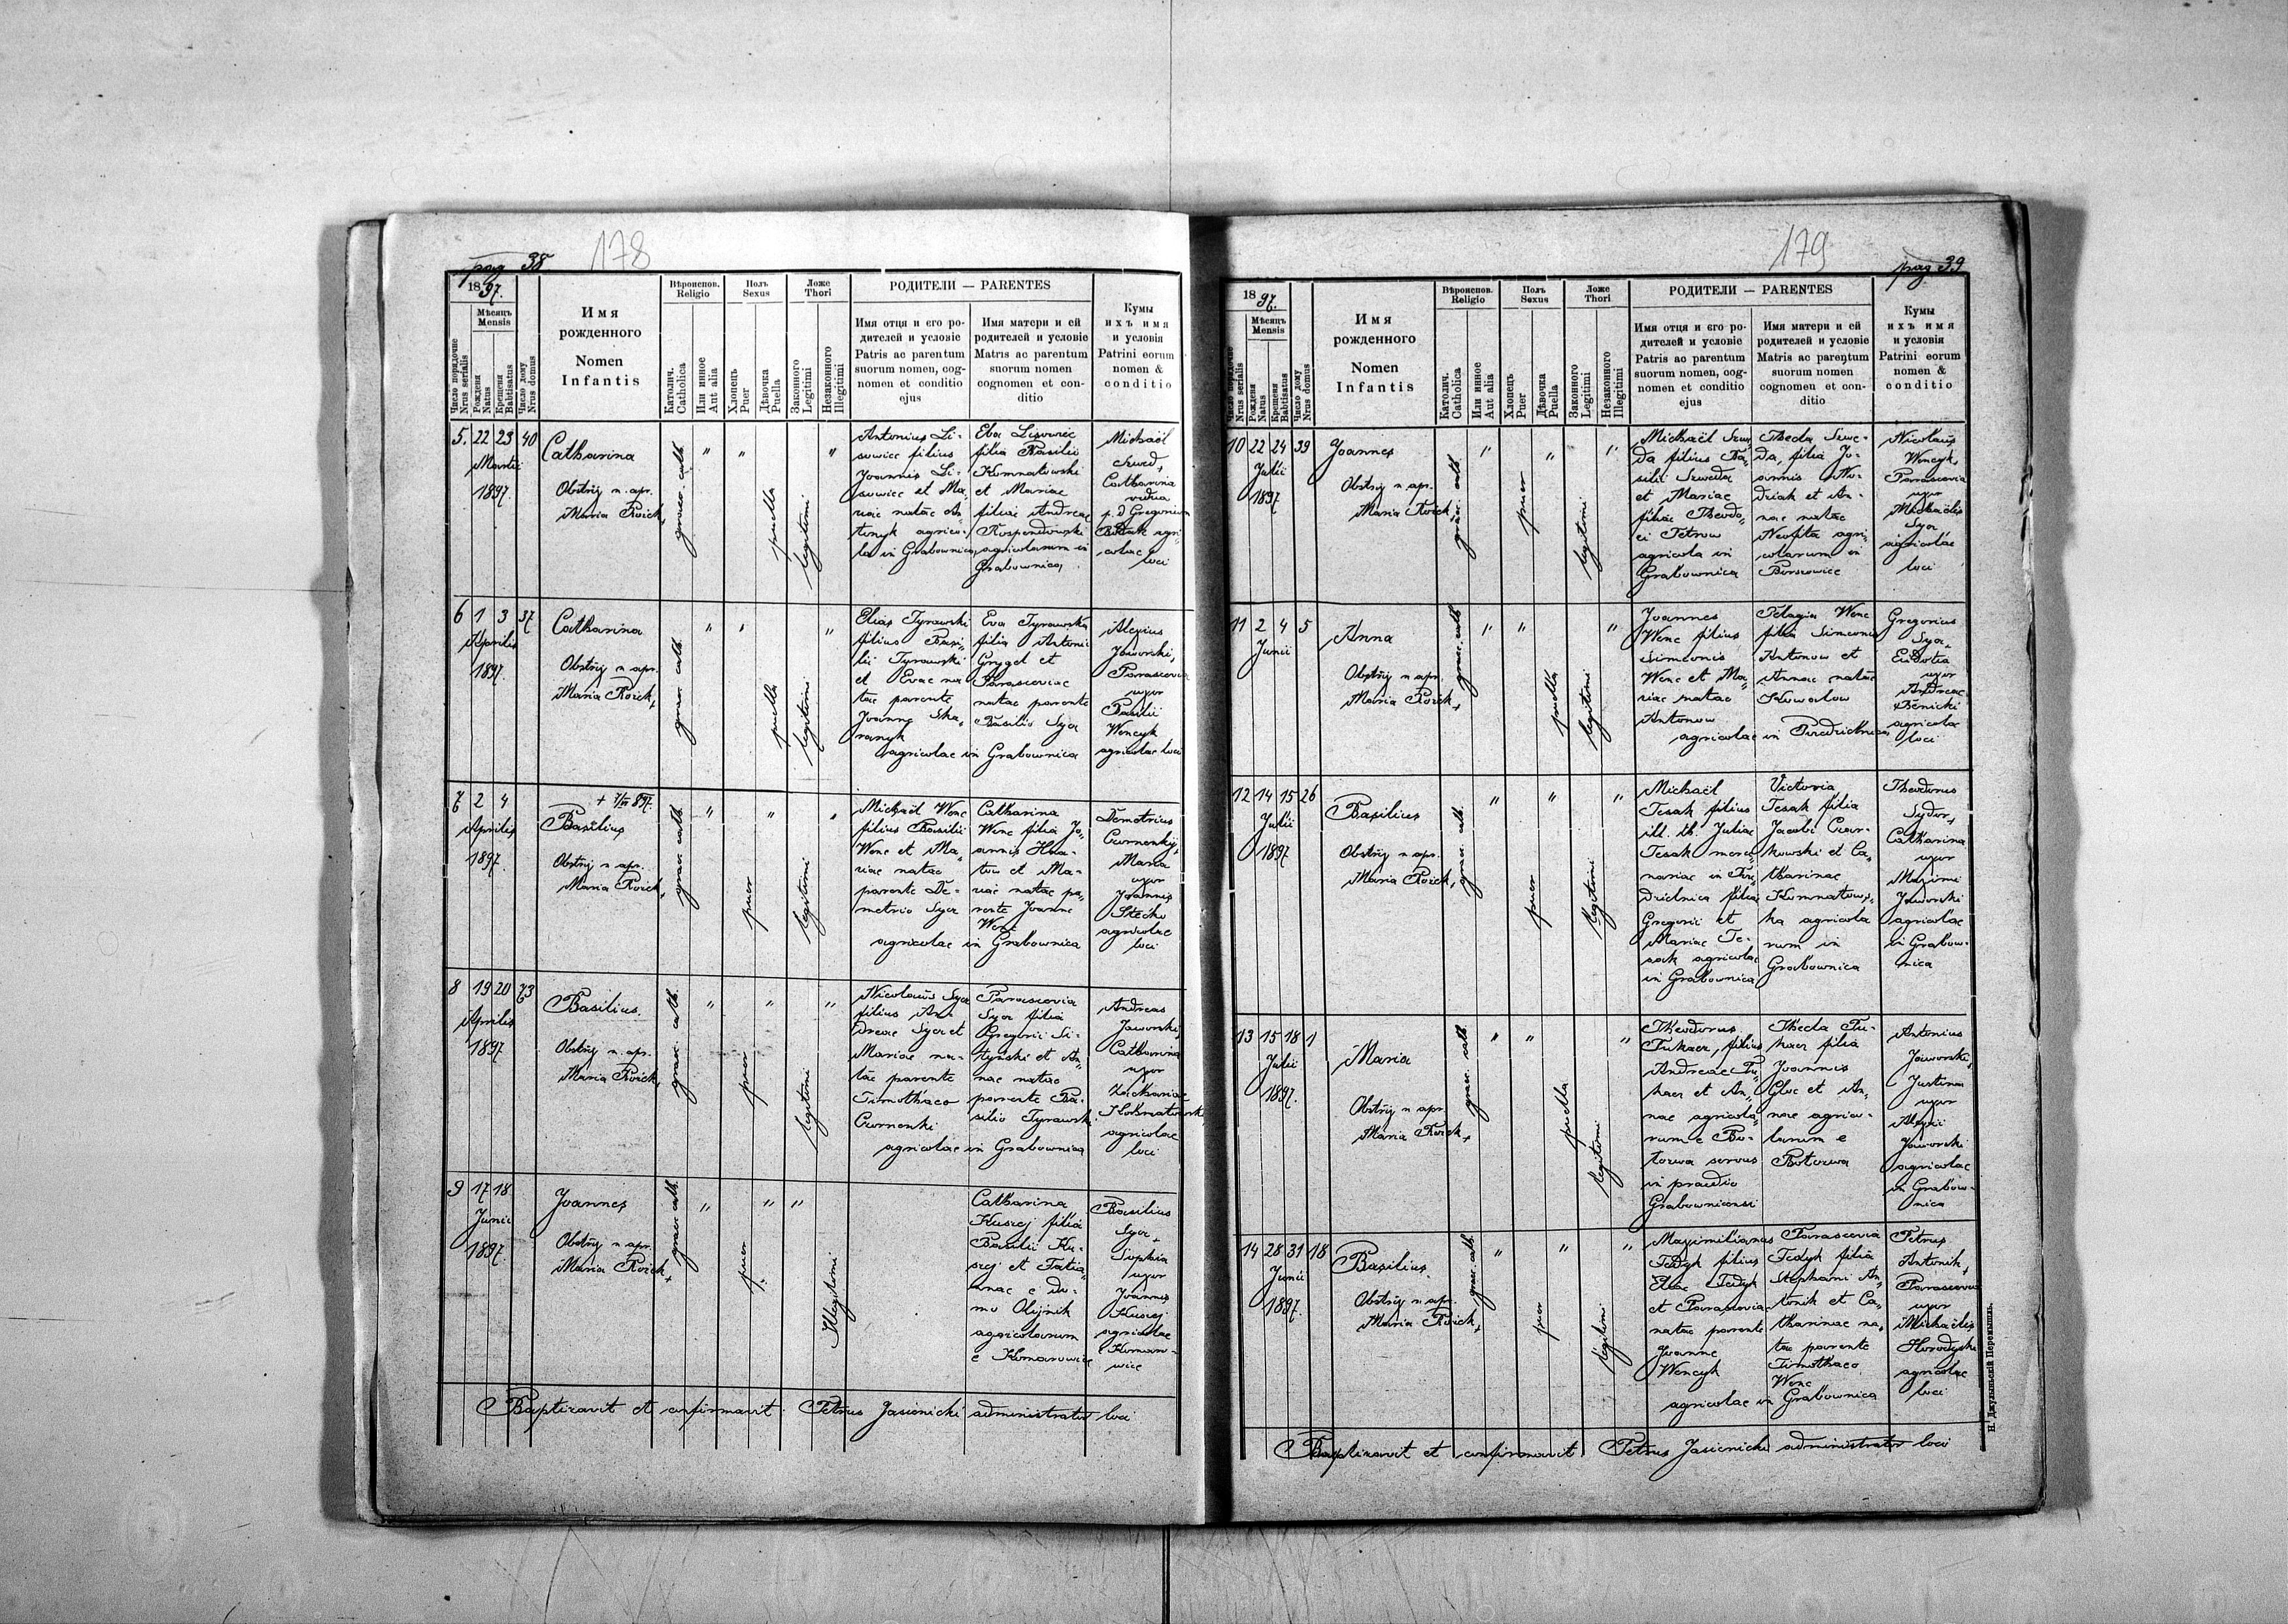 pag 38
178
1897.
Мѣсяцъ
Mensis
Число порядочне
Nrus serialis
Рожденя
Natus
Крещенія
Babtisatus
Число дому
Nrus domus
Имя
рожденного
Nomen
Infantis
Вѣроиспов.
Religio
Католич.
Catholica
Или инное
Aut alia
Полъ
Sexus
Хлопецъ
Puer
Дѣвочка
Puella
Ложе
Thori
Законного
Legitimi
Незаконного
Illegitimi
РОДИТЕЛИ — PARENTES
Имя отця и єго ро-
дителей и условіе
Patris ac parentum
suorum nomen, cog-
nomen et conditio
ejus
Имя матери и ей
родителей и условіе
Matris ac parentum
suorum nomen
cognomen et con-
ditio
Кумы
ихъ имя
и условія
Patrini eorum
nomen &
conditio
5. 22 23 40
Martii
1897.
Catharina
Obstrix n. apr.
Maria Roick +
graec. cath.
puella
legitimi
Antonius Li-
sowiec filius
Joannis Li-
sowiec et Ma-
riae natae An-
tonyk agrico-
la in Grabownica
Eva Lisowiec
filia Basilii
Komnatowski
et Mariae
filiae Andreae
Rospendowski
agricolarum in
Grabownica
Michaël
Szwed +
Catharina
vidua
p. d Gregorium
agri-
colae
loci
6 1 3 37
Aprilis
1897.
Catharina
Obstrix n. apr.
Maria Roick +
graec. cath.
puella
legitimi
Elias Tyrawski
filius Basi-
lii Tyrawski
et Evae na
tae parente
Joanne Ska-
ranyk
Eva Tyrawska
filia Antonii
Grygel et
Parasceviae
natae parente
Basilio Syca
agricolae in Grabownica
Alexius
Jaworski,
Parascevia
uxor
Basilii
Wencyk
agricolae loci
7 2 4
Aprilis
1897.
Basilius
Obstrix n. apr.
Maria Roick +
graec. cath.
puer
legitimi
Michaël Wenc
filius Basilii
Wenc et Ma-
riae natae
parente De-
metrio Syca
Catharina
Wenc filia Jo-
annis Hna-
tow et Ma-
riae natae pa-
rente Joanne
Wenc
agricolae in Grabownica
Demetrius
Maria
uxor
Joannis
Stecko
agricolae
loci
8 19 20 73
Aprilis
1897.
Basilius.
Obstrix n. apr.
Maria Roick +
graec. cath.
puer
legitimi
Nicolaus Syca
filius An
dreae Syca et
Mariae na-
tae parente
Timothaeo
Parascevia
Syca filia
Gregorii Si-
tyński et An-
nae natae
parente Ba-
silio Tyrawski
agricolae in Grabownica
Andreas
Jaworski,
Catharina
uxor
Zachariae
agricolae
loci
9 17 18
Junii
1897.
Joannes
Obstrix n. apr.
Maria Roick +
graec. cath.
puer
Illegitimi
Catharina
Kuszej filia
Basilii Ku-
szej et Tatia-
nae e do-
mo Olijnik
agricolarum
e Komarowice
Basilius
Syca +
Sophia
uxor
Joannis
Kuszej
agricolae
e Komaro-
wice
Baptizavit et confirmavit Petrus Jasienicki administrator loci
pag 39
179
1897.
Мѣсяцъ
Mensis
Число порядочне
Nrus serialis
Рожденя
Natus
Крещенія
Babtisatus
Число дому
Nrus domus
Имя
рожденного
Nomen
Infantis
Вѣроиспов.
Religio
Католич.
Catholica
Или инное
Aut alia
Полъ
Sexus
Хлопецъ
Puer
Дѣвочка
Puella
Ложе
Thori
Законного
Legitimi
Незаконного
Illegitimi
РОДИТЕЛИ — PARENTES
Имя отця и єго ро-
дителей и условіе
Patris ac parentum
suorum nomen, cog-
nomen et conditio
ejus
Имя матери и ей
родителей и условіе
Matris ac parentum
suorum nomen
cognomen et con-
ditio
Кумы
ихъ имя
и условія
Patrini eorum
nomen &
conditio
10 22 24 39
Julii
1897
Joannes
Obstrix n. apr.
Maria Roick +
graec. cath.
puer
legitimi
Michaël Szwe
da filius Ba-
silii Szweda
et Mariae
filiae Theodo-
ri Petrow
agricola in
Grabownica
Thecla Szwe-
da, filia Jo-
annis
et An-
nae natae
Neofita agri-
colarum in
Birszowice
Nicolaus
Wencyk,
Parascevia
uxor
Michaëlis
Syca
agricolae
loci
11 2 4 5
Junii
Anna
Obstrix n. apr.
Maria Roick +
graec. cath.
puella
legitimi
Joannes
Wenc filius
Simeonis
Wenc et Ma-
riae natae
Antonow
Pelagia Wenc
filia Simeonis
Antonow et
Annae natae
Kowalow
agricolae in
Gregorius
Syca
Eudotia
uxor
Andreae
agricolae
loci
12 14 15 26
Julii
1897
Basilius
Obstrix n. apr.
Maria Roick +
graec. cath.
puer
legitimi
Michaël
Tesak filius
ill. th. Juliae
Tesak merce-
nariae in
filiae
Gregorii et
Mariae Te-
sak agricolae
in Grabownica
Victoria
Tesak filia
Jacobi Czar-
kowski et Ca-
tharinae
Komnatows-
ka agricola
rum in
Grabownica
Theodorus
Sydor +
Catharina
uxor
Maximi
Jaworski
agricolae
in Grabow-
nica
13 15 18 1
Julii
1897.
Maria
Obstrix n. apr.
Maria Roick +
graec. cath.
puella
legitimi
Theodorus
Pukacz, filius
Andreae Pu-
kacz et An-
nae agricola-
rum e Bo-
tozwa servus
in praedio
Grabownicensi
Thecla Pu-
kacz filia
Joannis
Gluc et An-
nae agrico-
larum e
Botozwa
Antonius
Jaworski,
Justina
uxor
Alexii
Jaworski
agricolae
in Grabow-
nica
14 28 31 18
Junii
1897.
Basilius.
Obstrix n. apr.
Maria Roick +
graec. cath.
puer
legitimi
Maximilianus
Fedyk filius
Eliae Fedyk
et Parascevia
natae parente
Joanne
Wencyk
Parascevia
Fedyk filia
Stephani An-
tonik et Ca-
tharinae na-
tae parente
Timothaeo
Wenc
agricolae in Grabownica
Petrus
Antonik +
Parascevia
uxor
Michaëlis
Horodyski
agricolae
loci
Baptizavit et confirmavit Petrus Jasienicki administrator loci
Н. Джулыньскій Перемышль.